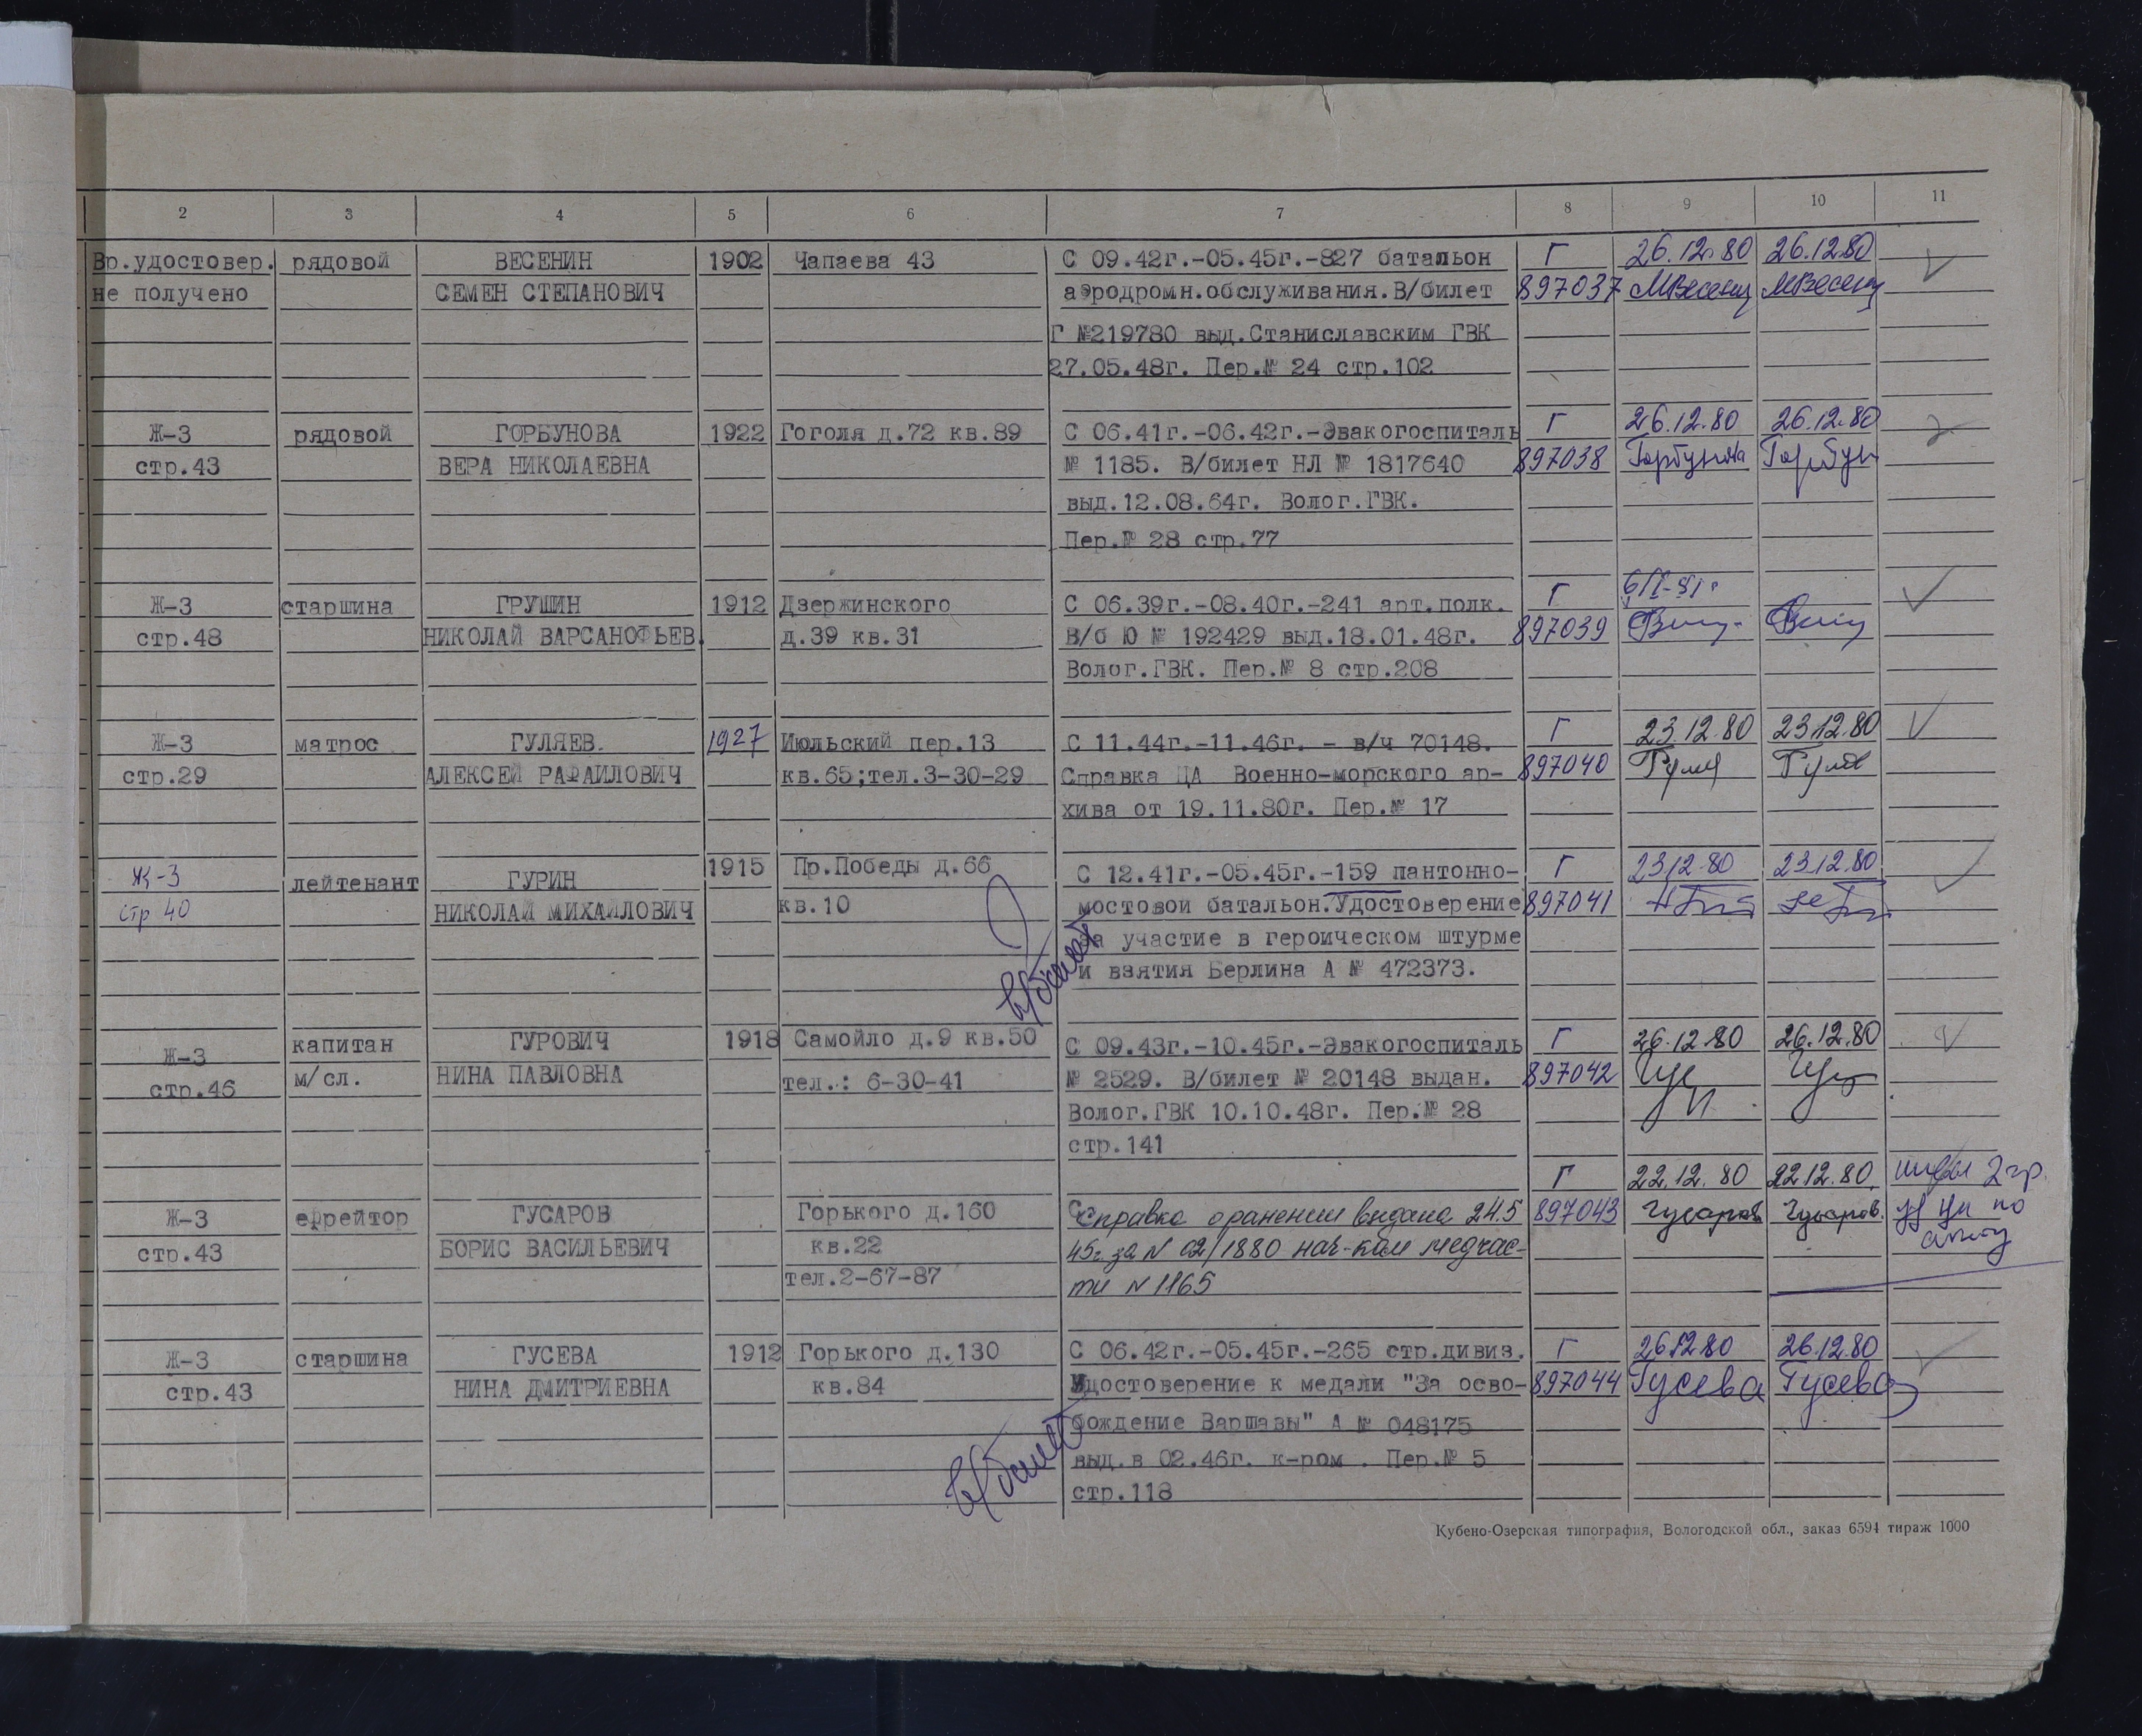 2 3 4 5 6 7 8 9 10 11
Вр.удостовер. рядовой ВЕСЕНИН 1902 Чапаева 43 С 09.42г.-05.45г.-827 батальон Г 26.12.80 26.12.80
не получено СЕМЕН СТЕПАНОВИЧ аэродромн.обслуживания.В/билет 897037
Г №219780 выд.Станиславским ГВК
27.05.48г. Пер.№ 24 стр.102
Ж-3 рядовой ГОРБУНОВА 1922 Гоголя д.72 кв.89 С 06.41г.-06.42г.-Эвакогоспиталь Г 26.12.80 26.12.80
стр.43 ВЕРА НИКОЛАЕВНА № 1185. В/билет НЛ № 1817640 897038 Горбунова Горбун
выд.12.08.64г. Волог.ГВК.
Пер.№ 28 стр.77
Ж-3 старшина ГРУШИН 1912 Дзержинского С 06.39г.-08.40г.-241 арт.полк. Г
стр.48 НИКОЛАЙ ВАРСАНОФЬЕВ. д.39 кв.31 В/б Ю № 192429 выд.18.01.48г. 897039
Волог.ГВК. Пер.№ 8 стр.208
Ж-3 матрос ГУЛЯЕВ. 1927 Июльский пер.13 С 11.44г.-11.46г. - в/ч 70148. Г 23.12.80 23.12.80
стр.29 АЛЕКСЕЙ РАФАИЛОВИЧ кв.65;тел.3-30-29 Справка ЦА Военно-морского ар- 897040
хива от 19.11.80г. Пер.№ 17
Ж-3 лейтенант ГУРИН 1915 Пр.Победы д.66 С 12.41г.-05.45г.-159 пантонно- Г 23/12-80 23.12.80
стр 40 НИКОЛАЙ МИХАЙЛОВИЧ кв.10 мостовой батальон.Удостоверение 897041
за участие в героическом штурме
и взятия Берлина А № 472373.
Ж-3 капитан ГУРОВИЧ 1918 Самойло д.9 кв.50 С 09.43г.-10.45г.-Эвакогоспиталь Г 26.12.80 26.12.80
стр.46 м/сл. НИНА ПАВЛОВНА тел.: 6-30-41 № 2529. В/билет № 20148 выдан. 897042
Волог.ГВК 10.10.48г. Пер.№ 28
стр.141
Ж-3 ефрейтор ГУСАРОВ Горького д.160 Справка о ранении выдана 24.5 Г 897043 22.12.80 22.12.80. Гусаров Гусаров. 2 гр.
стр.43 БОРИС ВАСИЛЬЕВИЧ кв.22 45г. за N 02/1880 нач-ком медчас-
тел.2-67-87 ти N 1165
Ж-3 старшина ГУСЕВА 1912 Горького д.130 С 06.42г.-05.45г.-265 стр.дивиз. Г 26.12.80 26.12.80
стр.43 НИНА ДМИТРИЕВНА кв.84 Удостоверение к медали "За осво- 897044 Гусева Гусева
бождение Варшавы" А № 048175
выд.в 02.46г. к-ром . Пер.№ 5
стр.118
Кубено-Озерская типография, Вологодской обл., заказ 6594 тираж 1000